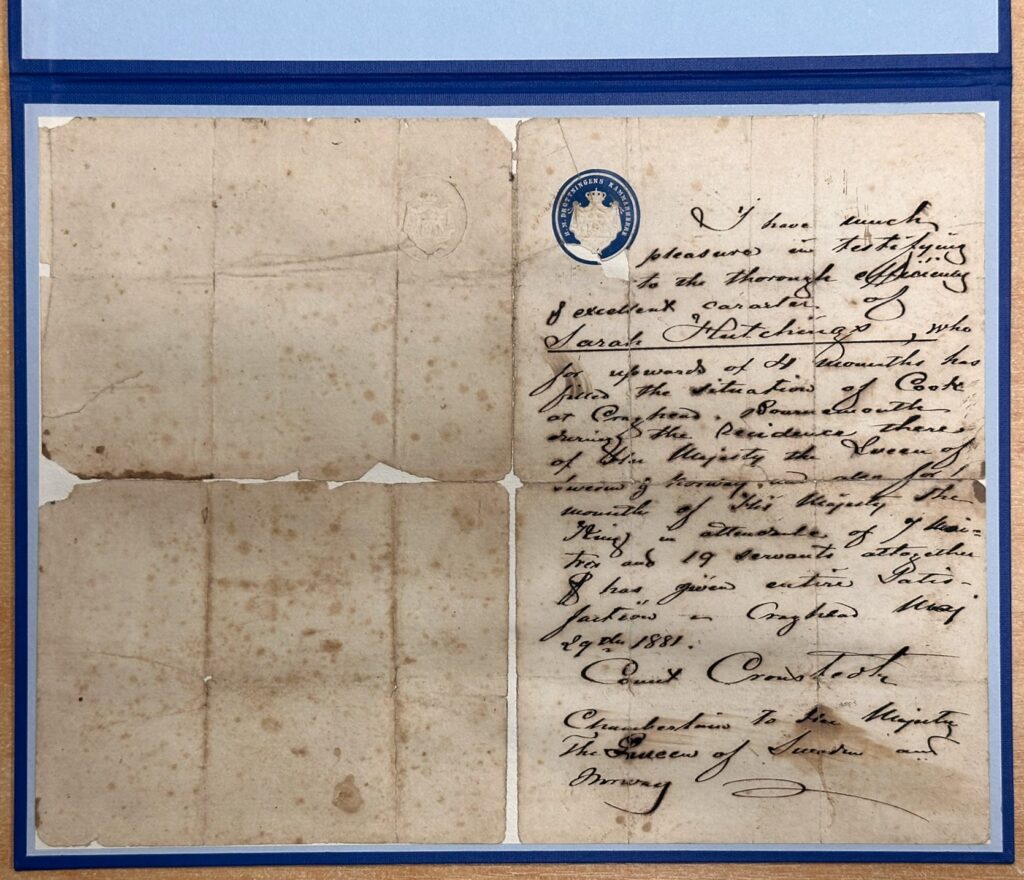 H. M. DROTTNINGENS KAMMARHERRE
I have much
pleasure in testifying
to the thorough efficiency
& excellent caracter of
Sarah Hutchings, who
for upwards of 4 months has
filled the situation of Cook
at Craghead. Bournemouth
during the Residence there
of Her Majesty the Queen of
Sweden & Norway. and also for
month of His Majesty the
King in attendance of 7 Mai-
tres and 19 servants altogether
& has given entire Satis-
faction - Craghead May
29th 1881.
Count Cronstedt
Chamberlain to Her Majesty
The Queen of Sweden and
Norway